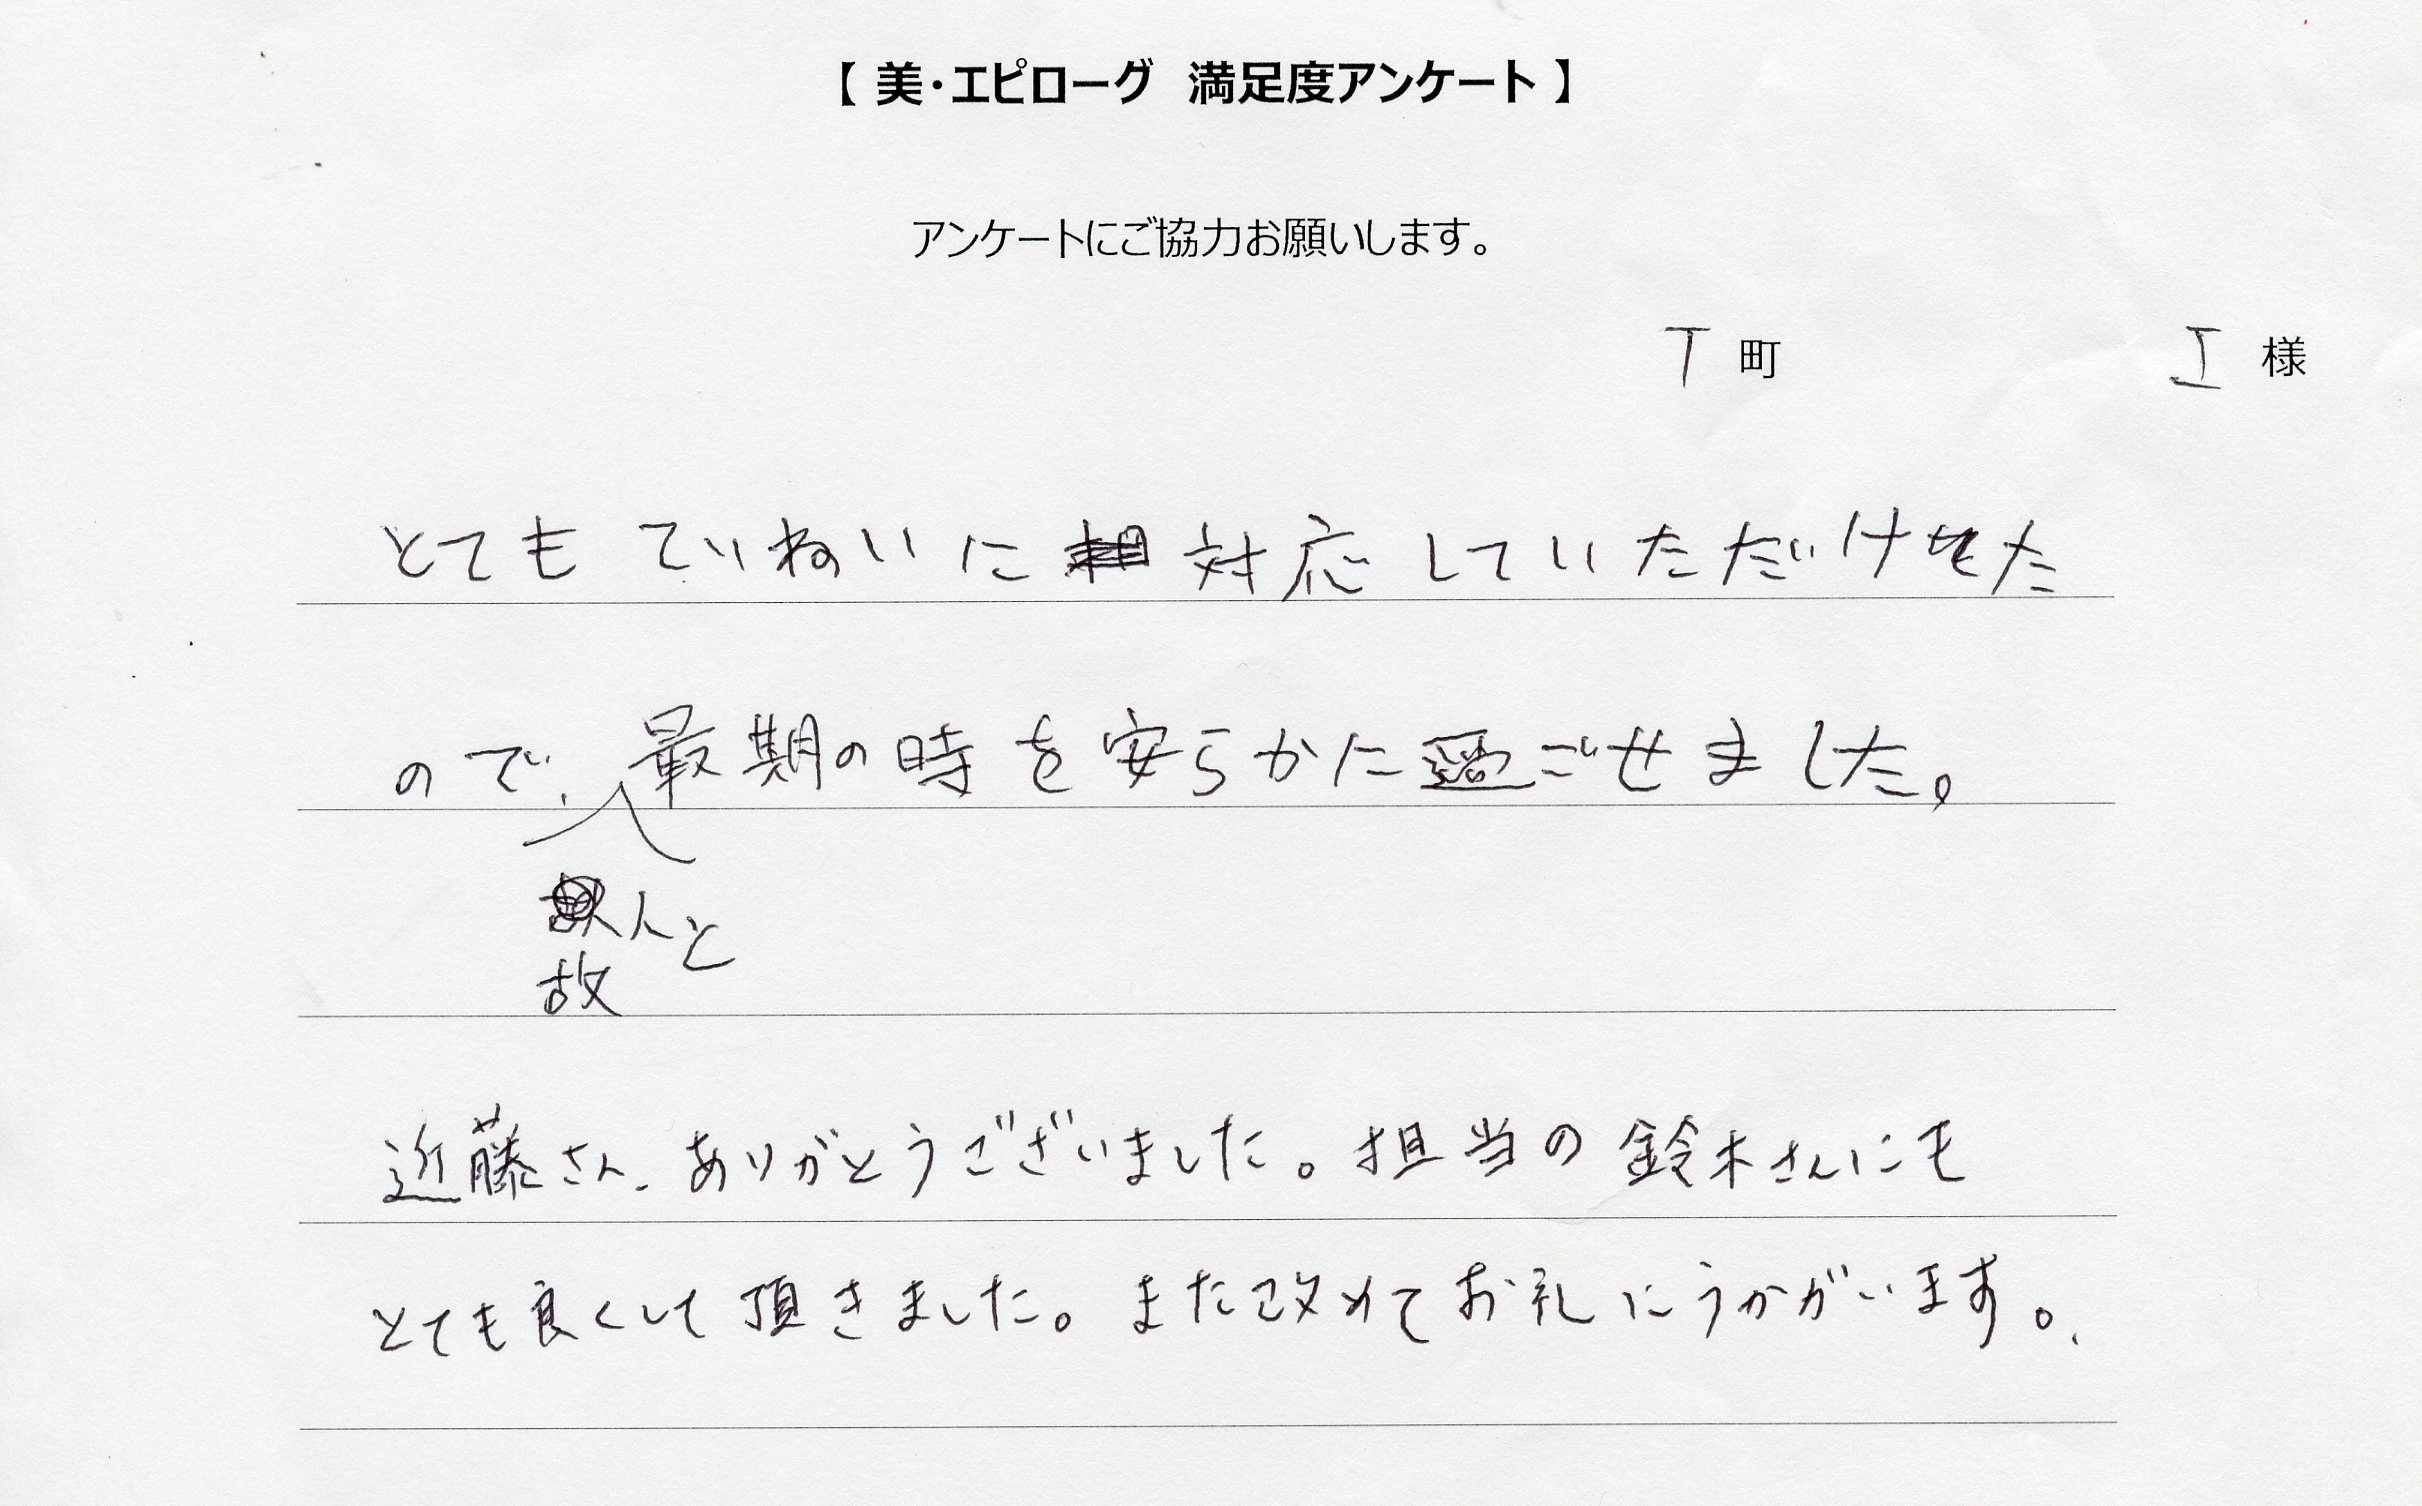 【 美・エピローグ 満足度アンケート 】
アンケートにご協力お願いします。
T 町 I 様
とてもていねいに対応していただけた
ので、最期の時を安らかに過ごせました。
人と
故
近藤さん、ありがとうございました。担当の鈴木さんにも
とても良くして頂きました。また改めてお礼にうかがいます。